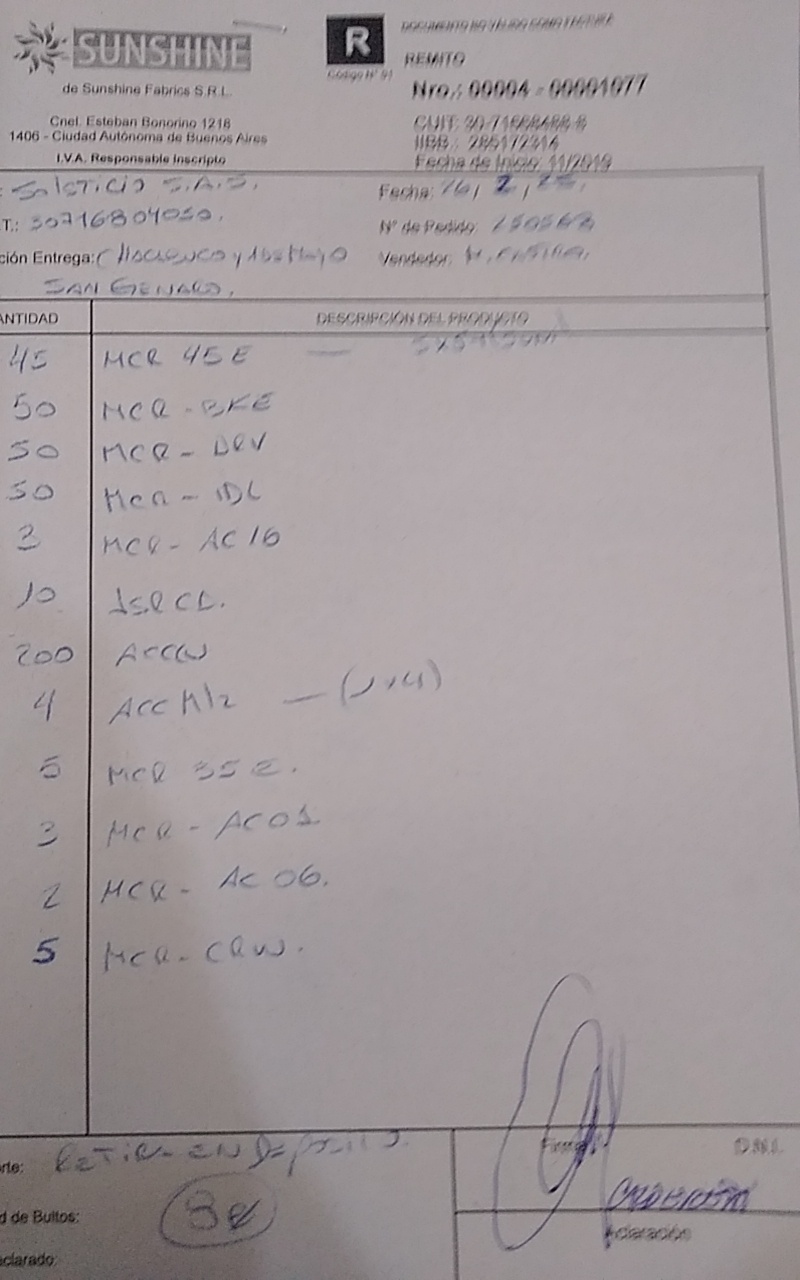 SUNSHINE
R
DOCUMENTO NO VALIDO COMO FACTURA
de Sunshine Fabrics S.R.L.
Código Nº 91
REMITO
Nro.: 00004 - 00001077
Cnel. Esteban Bonorino 1218
1406 - Ciudad Autónoma de Buenos Aires
I.V.A. Responsable Inscripto
CUIT:
IIBB :
Fecha de Inicio: 11/2019
Solsticio S.A.S. Fecha: 16, 2, 25.
T.: 30716804050. Nº de Pedido:
ción Entrega: y Vendedor:
SAN GENARO.
ANTIDAD DESCRIPCIÓN DEL PRODUCTO
45 MCR 45E —
50 MCR - BKE
50 MCR - DRV
50 MCR - IDL
3 MCR - AC16
10
200 ACCW
4 —
5 MCR 35E.
3 MCR - AC01
2 MCR - AC06.
5 MCR - CRW.
rte: Retira en Deposito.
Firma D.N.I.
d de Bultos:
Aclaración
eclarado: